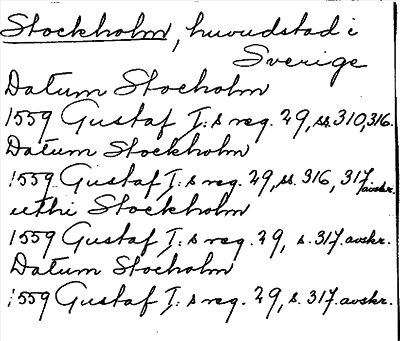 Stockholm, huvudstad i
Sverige
Datum Stocholm
1559 Gustaf I:s reg. 29, ss. 310, 316.
Datum Stockholm
1559 Gustaf I:s reg. 29, ss. 316, 317 avskr.
uthi Stockholm
1559 Gustaf I:s reg. 29, s. 317. avskr.
Datum Stocholm
1559 Gustaf I:s reg. 29, s. 317. avskr.